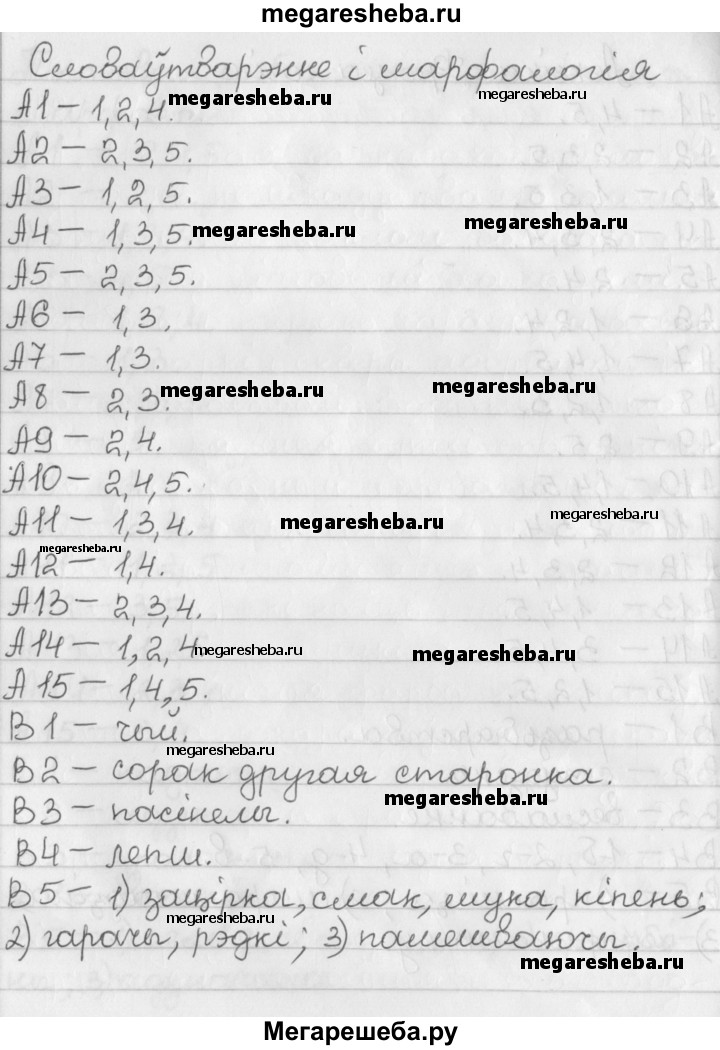 megaresheba.ru
Словаўтварэнне і марфалогія
А1 – 1, 2, 4. megaresheba.ru megaresheba.ru
А2 – 2, 3, 5.
А3 – 1, 2, 5.
А4 – 1, 3, 5. megaresheba.ru megaresheba.ru
А5 – 2, 3, 5.
А6 – 1, 3.
А7 – 1, 3.
А8 – 2, 3. megaresheba.ru megaresheba.ru
А9 – 2, 4.
А10 – 2, 4, 5.
А11 – 1, 3, 4. megaresheba.ru megaresheba.ru
megaresheba.ru
А12 – 1, 4.
А13 – 2, 3, 4.
А14 – 1, 2, 4 megaresheba.ru megaresheba.ru
А15 – 1, 4, 5.
В1 – чый.
megaresheba.ru
В2 – сорак другая старонка.
В3 – пасінелы. megaresheba.ru
В4 – лепш.
В5 – 1) зацірка, смак, мука, кіпень;
megaresheba.ru
2) гарачы, рэдкі; 3) памешваючы.
megaresheba.ru
Мегарешеба.ру